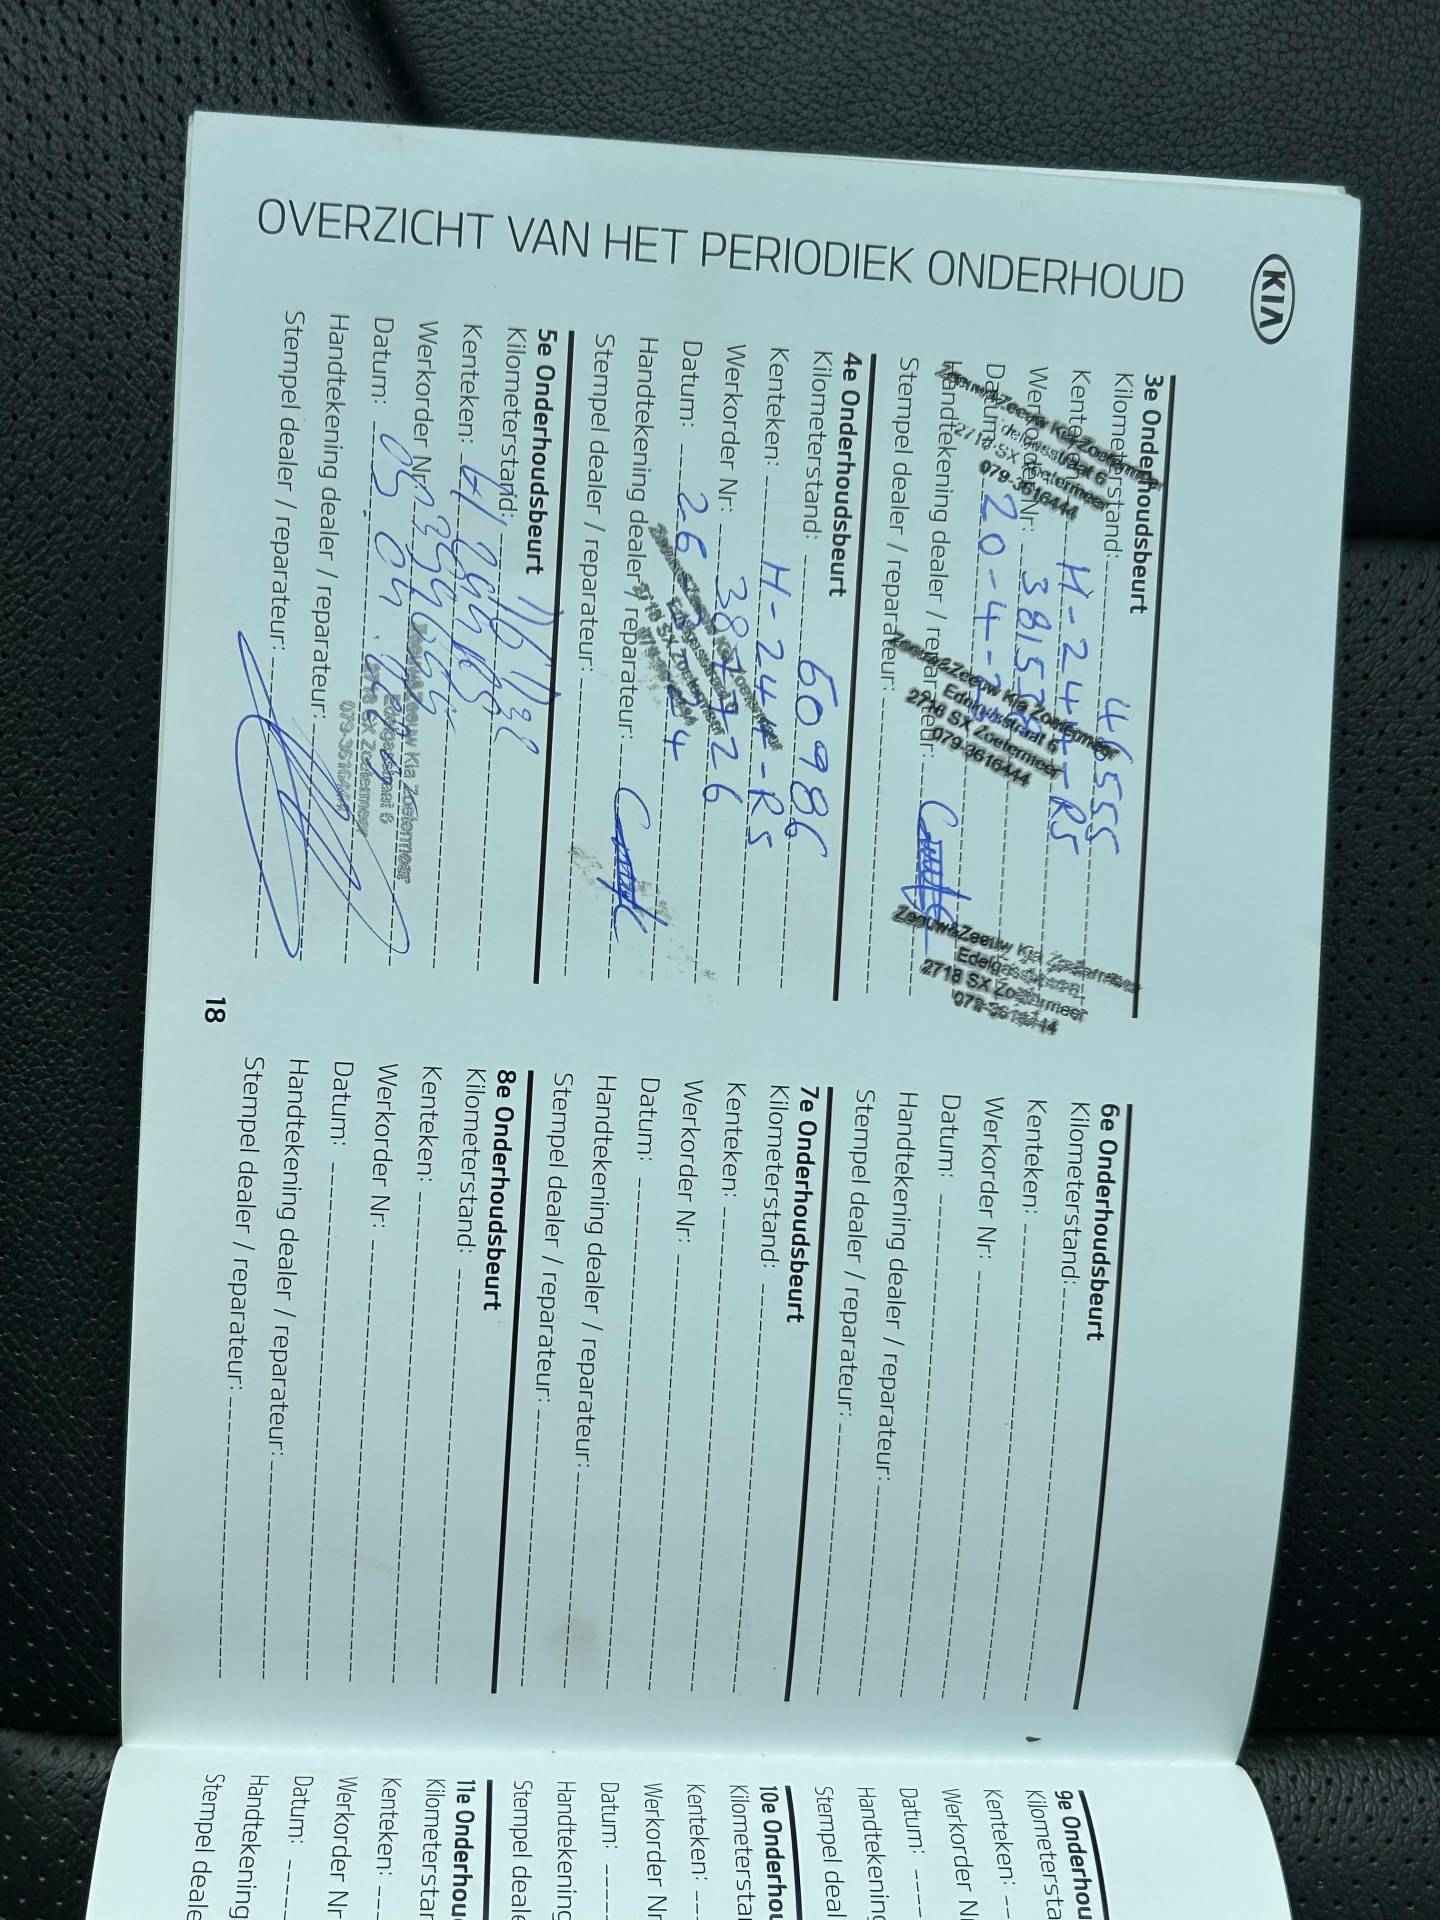 KIA
OVERZICHT VAN HET PERIODIEK ONDERHOUD
3e Onderhoudsbeurt
Kilometerstand: 46555
Kenteken: H-244-RS
Werkorder Nr:
Datum: 20-4-
Handtekening dealer / reparateur:
Stempel dealer / reparateur:
Zeeuw&Zeeuw Kia Zoetermeer
Edelgasstraat 6
2718 SX Zoetermeer
079-3616444
Zeeuw&Zeeuw Kia Zoetermeer
Edelgasstraat 6
2718 SX Zoetermeer
079-3616444
Zeeuw&Zeeuw Kia Zoetermeer
Edelgasstraat 6
2718 SX Zoetermeer
079-3616444
4e Onderhoudsbeurt
Kilometerstand: 60986
Kenteken: H-244-RS
Werkorder Nr: 387726
Datum: 26
Handtekening dealer / reparateur:
Stempel dealer / reparateur:
Zeeuw&Zeeuw Kia Zoetermeer
Edelgasstraat 6
2718 SX Zoetermeer
5e Onderhoudsbeurt
Kilometerstand:
Kenteken: H244RS
Werkorder Nr:
Datum: 05.04.
Handtekening dealer / reparateur:
Stempel dealer / reparateur:
Zeeuw&Zeeuw Kia Zoetermeer
Edelgasstraat 6
2718 SX Zoetermeer
079-3616444
18
6e Onderhoudsbeurt
Kilometerstand:
Kenteken:
Werkorder Nr:
Datum:
Handtekening dealer / reparateur:
Stempel dealer / reparateur:
7e Onderhoudsbeurt
Kilometerstand:
Kenteken:
Werkorder Nr:
Datum:
Handtekening dealer / reparateur:
Stempel dealer / reparateur:
8e Onderhoudsbeurt
Kilometerstand:
Kenteken:
Werkorder Nr:
Datum:
Handtekening dealer / reparateur:
Stempel dealer / reparateur:
9e Onderhou
Kilometersta
Kenteken:
Werkorder N
Datum:
Handtekening
Stempel deal
10e Onderhou
Kilometersta
Kenteken:
Werkorder Nr
Datum:
Handtekening
Stempel deale
11e Onderhou
Kilometerstar
Kenteken:
Werkorder Nr
Datum:
Handtekening
Stempel deale